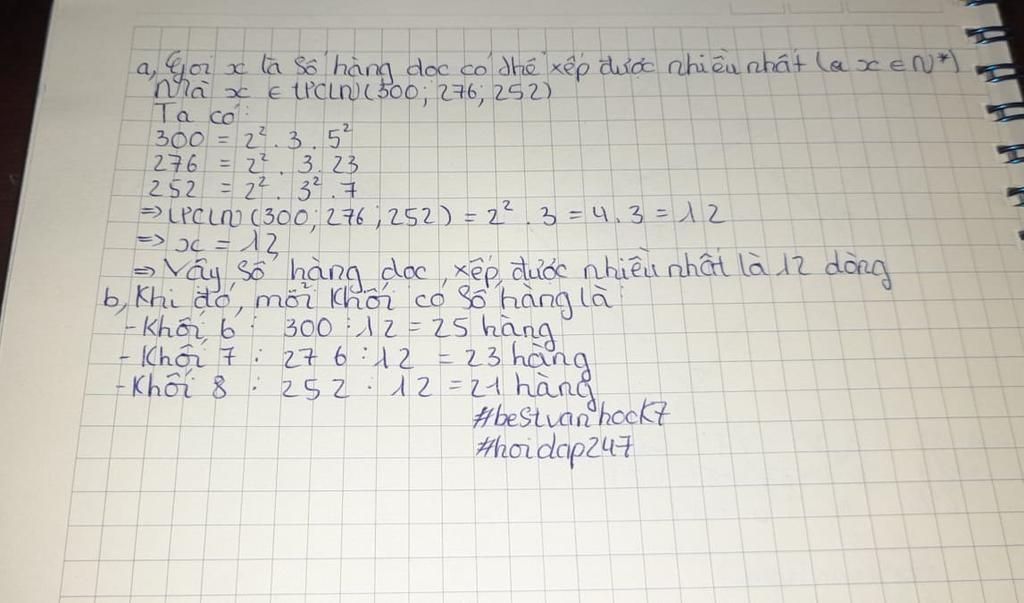 a, Gọi x là số hàng dọc có thể xếp được nhiều nhất (a x ∈ N*)
Mà x ∈ ƯCLN(300; 276; 252)
Ta có:
300 = 2². 3. 5²
276 = 2². 3. 23
252 = 2². 3². 7
=> ƯCLN(300; 276; 252) = 2². 3 = 4. 3 = 12
=> x = 12
=> Vậy, số hàng dọc, xếp, được nhiều nhất là 12 dòng
b, Khi đó, mỗi khối có số hàng là:
- Khối 6 : 300 : 12 = 25 hàng
- Khối 7 : 276 : 12 = 23 hàng
- Khối 8 : 252 : 12 = 21 hàng
#bestvanhock7
#hoidap247